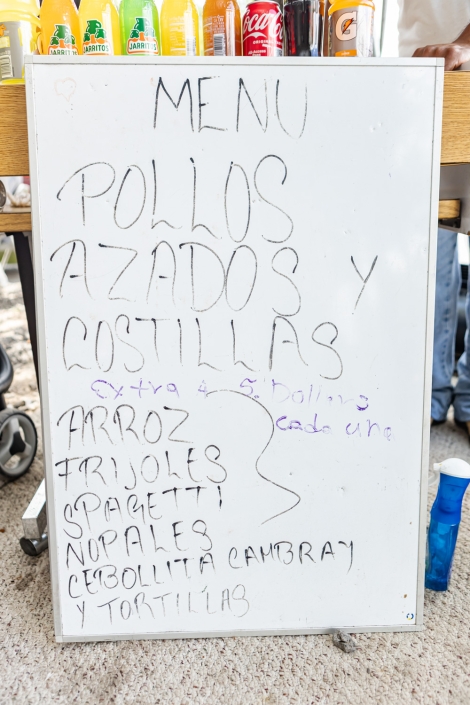 JARRITOS
JARRITOS
JARRITOS
Coca-Cola
G
MENU
POLLOS
AZADOS Y
COSTILLAS
Extra a 5. Dollars
cada una
ARROZ
FRIJOLES
SPAGETTI
NOPALES
CEBOLLITA CAMBRAY
Y TORTILLAS